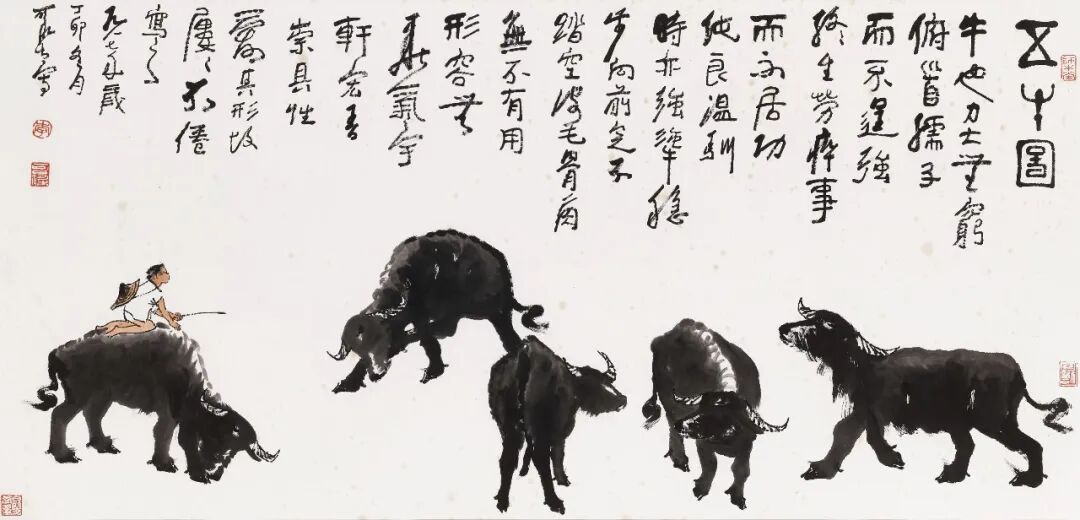 五牛圖
牛也力大無窮
俯首孺子
而不逞強
終生勞瘁事
而不居功
純良溫馴
時亦強犟穩
步向前足不
踏空皮毛骨角
無不有用
形容無
華氣宇
軒宏吾
崇其性
愛其形故
屢々不倦
寫之
年歲
丁卯冬月
可染寫